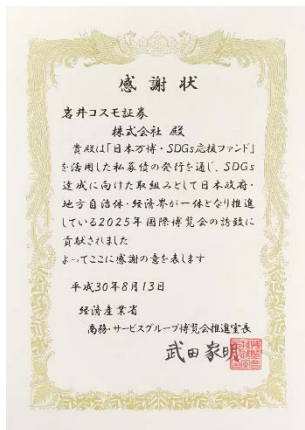 感謝状
岩井コスモ証券
株式会社 殿
貴殿は「日本万博・SDGs応援ファンド」
を活用した私募債の発行を通じ、SDGs
達成に向けた取組みとして日本政府・
地方自治体・経済界が一体となり推進
している2025年国際博覧会の誘致に
貢献されました
よってここに感謝の意を表します
平成30年8月13日
経済産業省
商務・サービスグループ博覧会推進室長
武田家明